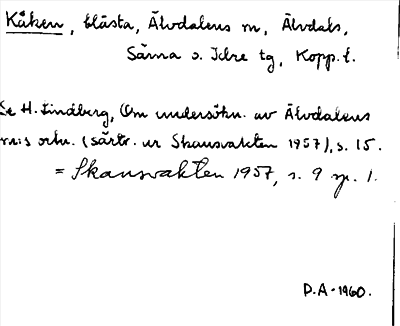 Kåken, blåsta, Älvdalens m, Älvdals,
Särna o. Idre tg, Kopp. l.
Se H. Lindberg, Om undersökn. av Älvdalens
m:s ortn. (särtr. ur Skansvakten 1957), s. 15.
= Skansvakten 1957, s. 9 sp. 1.
D.A. 1960.